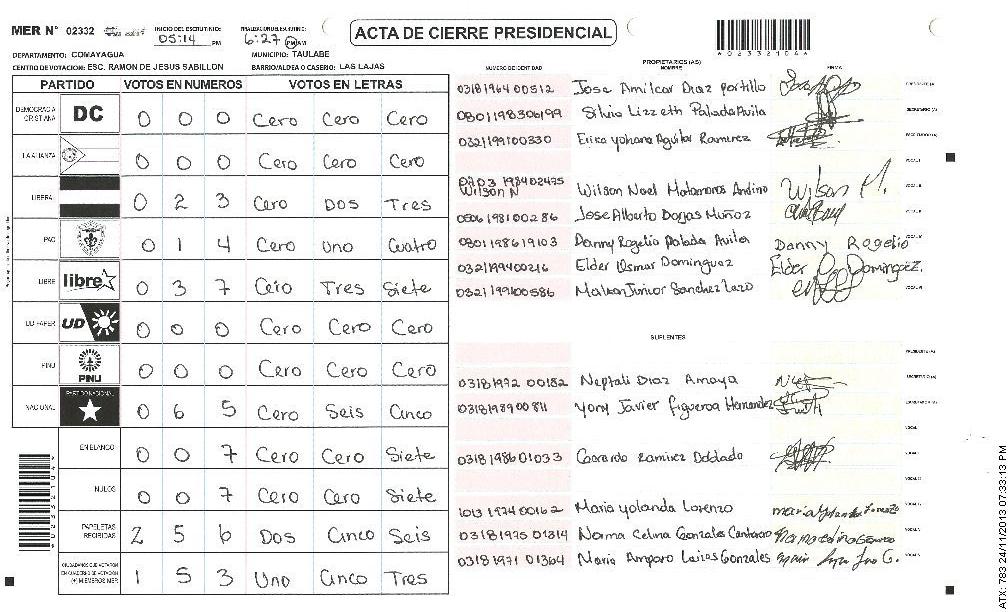 MER N° 02332 INICIO DEL ESCRUTINIO: 05:14 PM FINALIZACION DEL ESCRUTINIO: 6:27 PM AM
ACTA DE CIERRE PRESIDENCIAL
DEPARTAMENTO: COMAYAGUA MUNICIPIO: TAULABE
CENTRO DE VOTACION: ESC. RAMON DE JESUS SABILLON BARRIO/ALDEA O CASERIO: LAS LAJAS
PARTIDO VOTOS EN NUMEROS VOTOS EN LETRAS
DEMOCRACIA CRISTIANA DC 0 0 0 Cero Cero Cero
LA ALIANZA 0 0 0 Cero Cero Cero
LIBERAL 0 2 3 Cero Dos Tres
PAC 0 1 4 Cero Uno Cuatro
LIBRE libre 0 3 7 Cero Tres Siete
UD FAPER UD 0 0 0 Cero Cero Cero
PINU PINU 0 0 0 Cero Cero Cero
NACIONAL PARTIDO NACIONAL 0 6 5 Cero Seis Cinco
EN BLANCO 0 0 7 Cero Cero Siete
NULOS 0 0 7 Cero Cero Siete
PAPELETAS RECIBIDAS 2 5 6 Dos Cinco Seis
CIUDADANOS QUE VOTARON EN CUADERNO DE VOTACION (+) MIEMBROS MER 1 5 3 Uno Cinco Tres
PROPIETARIOS (AS)
NUMERO DE IDENTIDAD NOMBRE FIRMA
0318 1964 00512 Jose Amilcar Diaz portillo
0801198306199 Silvia Lizzeth Palada Avila
0321199100330 Erica yohana Aguilar Ramirez
0703 198402475 Wilson N Wilson Noel Matamoros Andino Wilson M.
0506198100286 Jose Alberto Borjas Muñoz
0801198619103 Danny Rogelio Palada Avila Danny Rogelio
0321199400216 Elder Osmar Dominguez Elder O Dominguez.
0321199100586 Maikon Junior Sanchez Lazo
SUPLENTES
0318 1972 00182 Neptali Diaz Amaya
0318198900811 Yony Javier figueroa Hernandez
0318 1986 01033 Gerardo Ramirez Doblado
1013 1974 00162 Maria yolanda Lorenzo
0318 1975 01314 Norma Celina Gonzales
0318 1971 01364 Maria Amparo Gonzales
ATX: 783 24/11/2013 07:33:13 PM